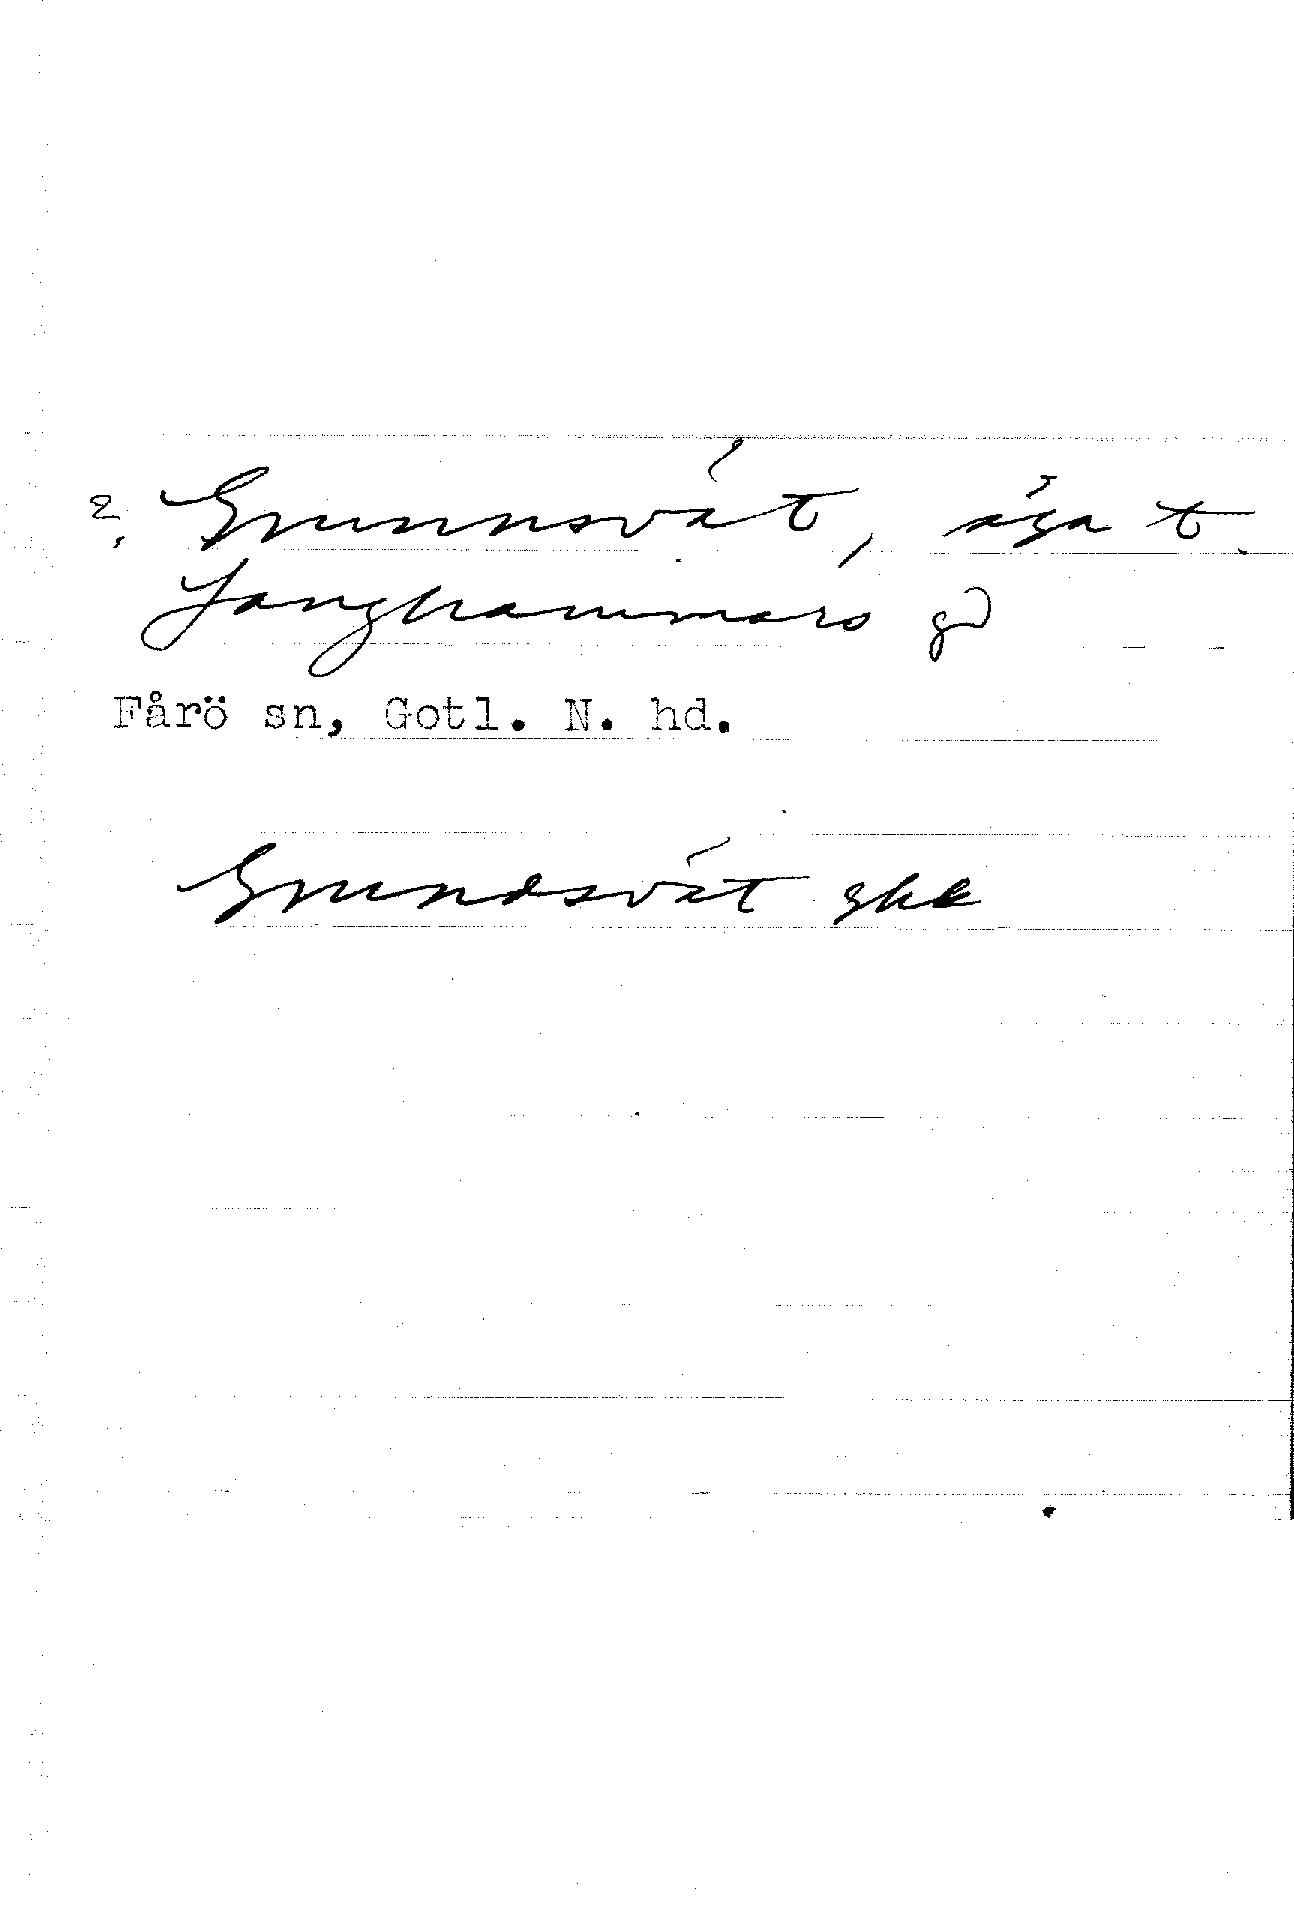 2. Grunnsvät, äga t.
Langhammars gd
Fårö sn, Gotl. N. hd.
Grundsvät gkk